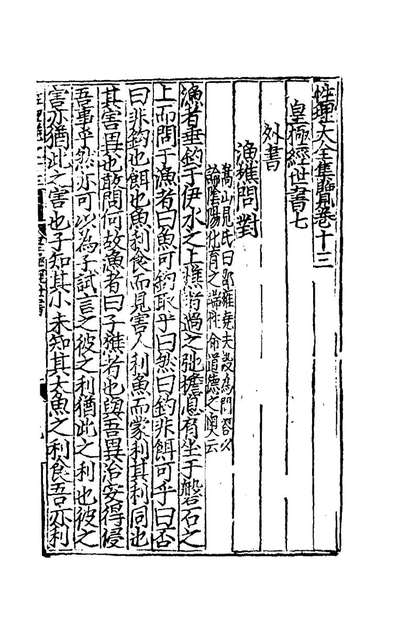 性理大全集覽卷十三
皇極經世書七
外書
漁樵問對
嵩山晁氏曰邵雍堯夫設為問答以
論陰陽化育之端性命道德之奧云
漁者垂釣于伊水之上樵者過之弛檐息肩坐于磐石之
上而問于漁者曰魚可鈎取乎曰然曰鈎非餌可乎曰否
曰非鈎也餌也魚利食而見害人利魚而蒙利其利同也
其害異也敢問何故漁者曰子樵者也與吾異治安得侵
吾事乎然亦可以為子試言之彼之利猶此之利也彼之
害亦猶此之害也子知其小未知其大魚之利食吾亦利